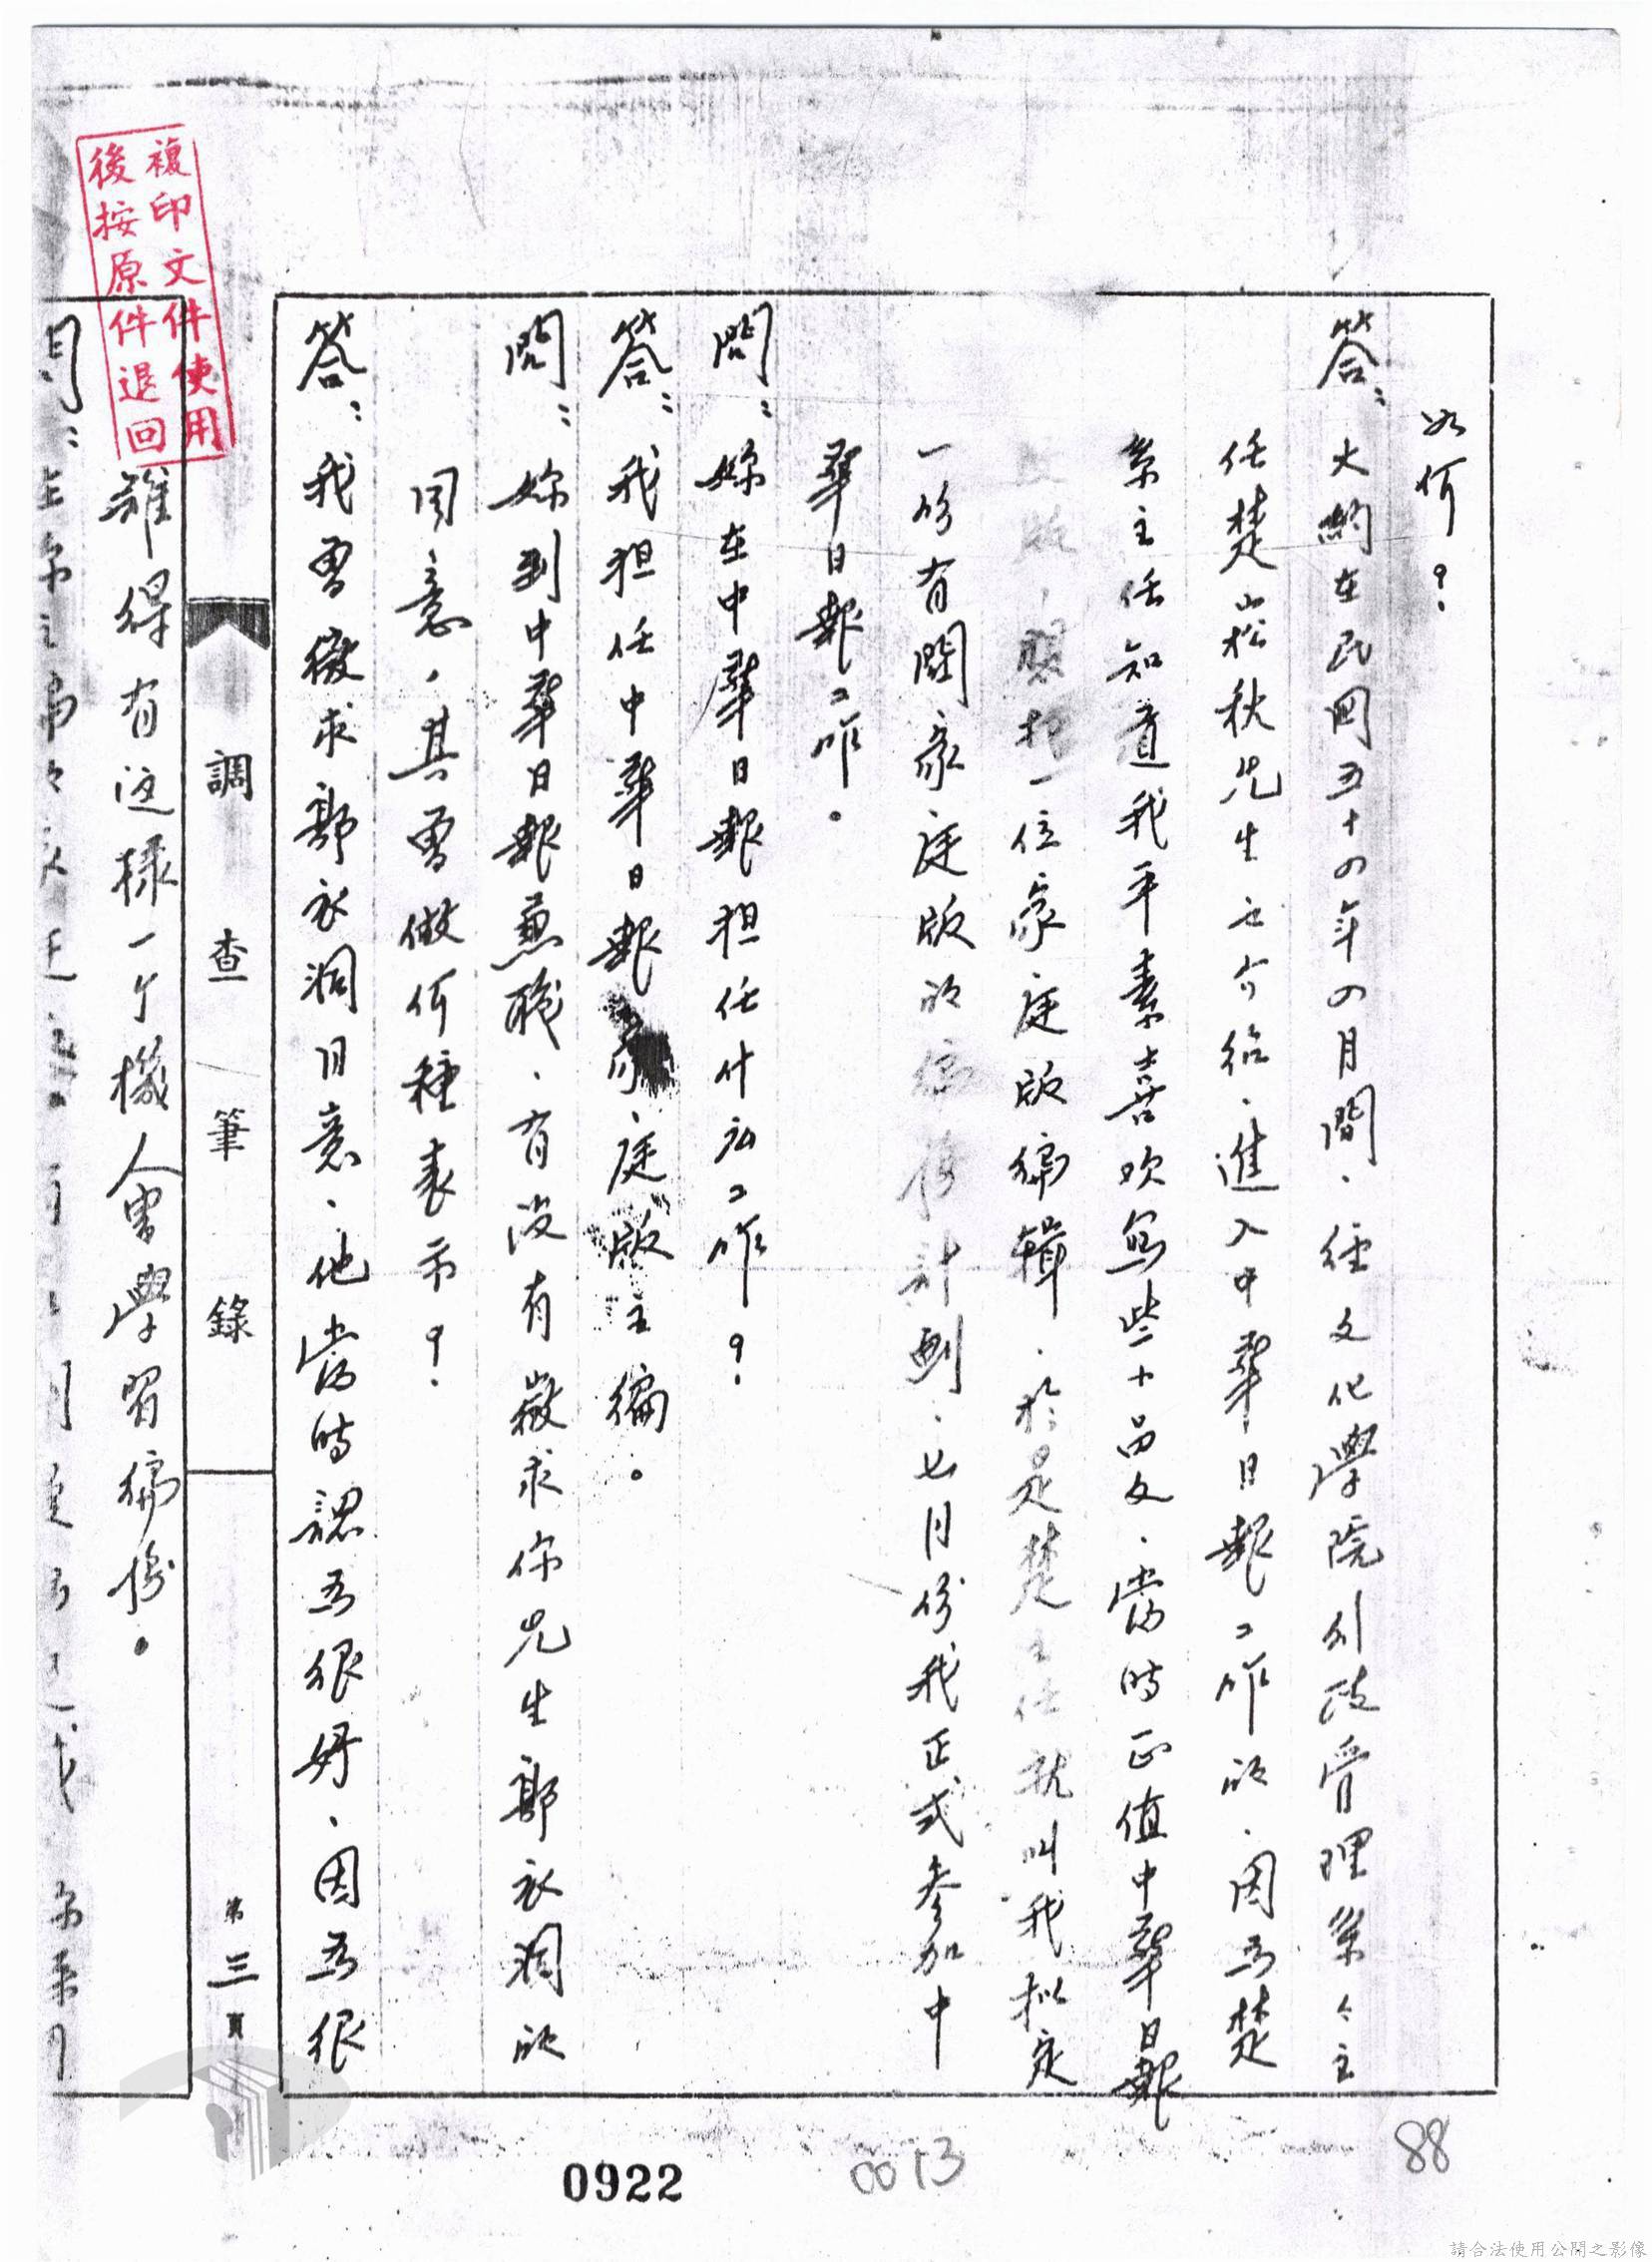 如何?
答:大約在民國五十四年四月間、經文化學院行政管理系系主
任楚崧秋先生之介紹、進入中華日報工作的、因為楚
系主任知道我平素喜歡寫些小品文、當時正值中華日報
改版、聘一位家庭版編輯、於是楚主任就叫我拟定
一份有關家庭版的編務計劃、七月份我正式參加中
華日報工作。
問:妳在中華日報担任什么工作?
答:我担任中華日報家庭版主編。
問:妳到中華日報兼職、有沒有徵求你先生郭衣洞的
同意,其曾做何種表示?
答:我曾徵求郭衣洞同意、他當時認為很好、因為很
調查筆錄
第三頁
難得有這樣一个機會學習編務。
複印文件使用
後按原件退回
0922
0013
88
請合法使用公開之影像